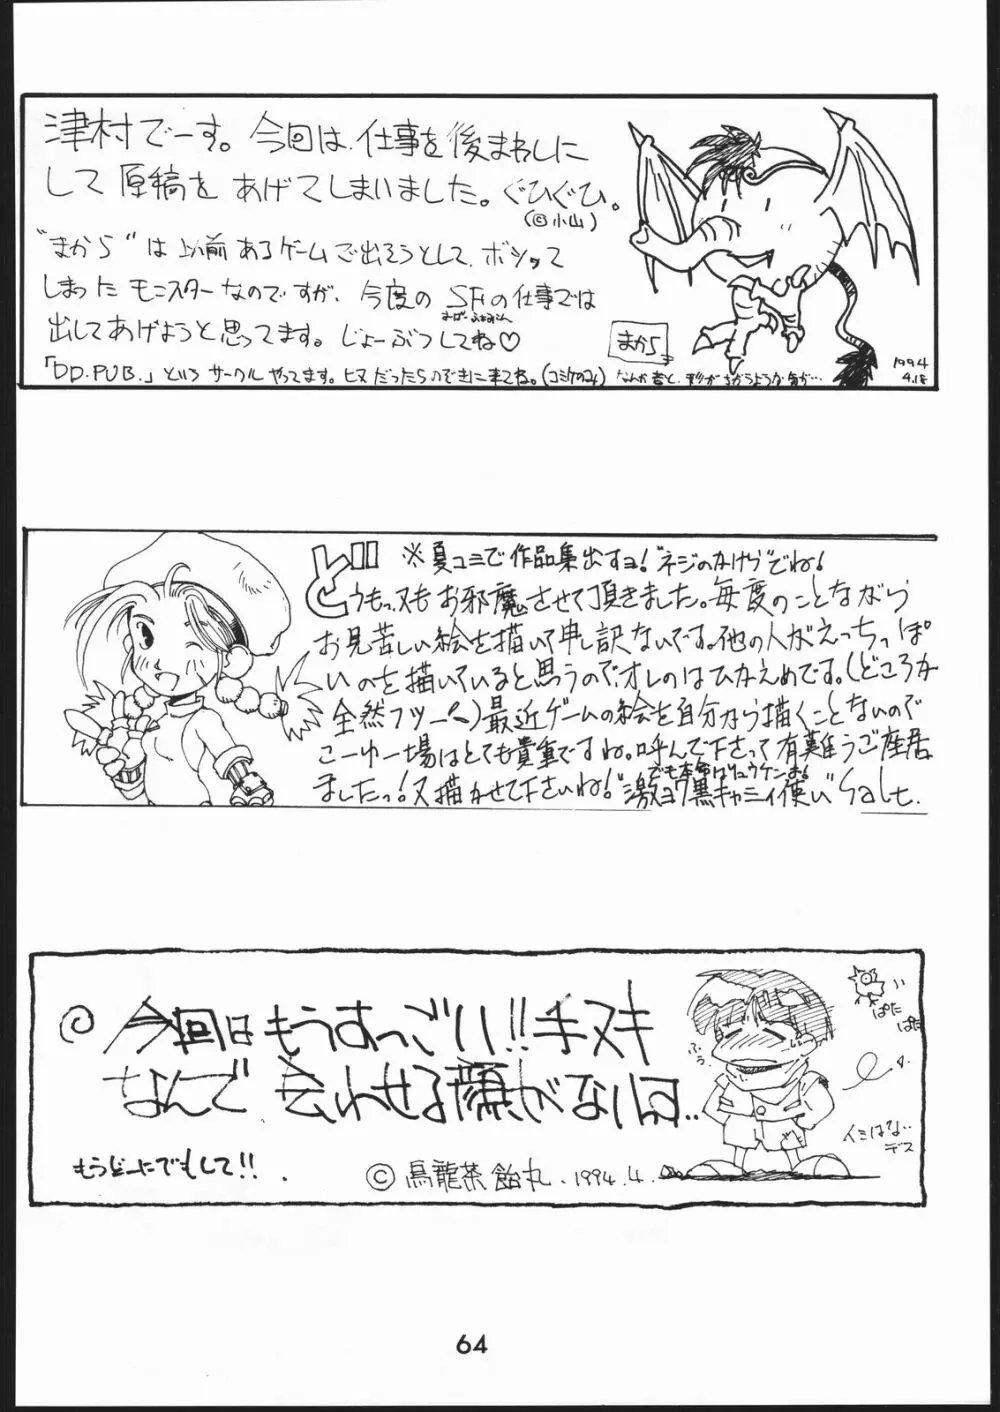 津村でーす。今回は、仕事を後まわしに
して原稿をあげてしまいました。ぐひぐひ。
(©小山)
"まから"は以前あるゲームで出そうとして、ボツッて
しまったモンスターなのですが、今度のSFCの仕事では
すーぱーふぁみこん
出してあげようと思ってます。じょーぶつしてね♡
「DD.PUB.」というサークルやってます。ヒマだったらのぞきに来てね。(コミケのみ) なんか昔と、形がちがうような気が…
まから
1994
4.18
※夏コミで作品集出すヨ!"ネジのかけら"でね!
どうもっ、又もお邪魔させて頂きました。毎度のことながら
お見苦しい絵を描いて申し訳ないです。他の人がえっちっぽ
いのを描いていると思うので、オレのはひかえめです。(どころか
全然フツー〜)最近ゲームの絵を自分から描くことないので
こーゆー場はとても貴重ですね。呼んで下さって有難うご座居
ましたっ!又描かせて下さいね!"激ヨワ黒キャミィ使い"Salt.
でも本命はリュウケンよ!
今回はもうすっごい!!手ヌキ
なんで、会わせる顔がないは..
もうどーにでもして!!.
©烏龍茶飴丸.1994.4.
ふぅ
ぱた
ぱた
イミはない
デス
64